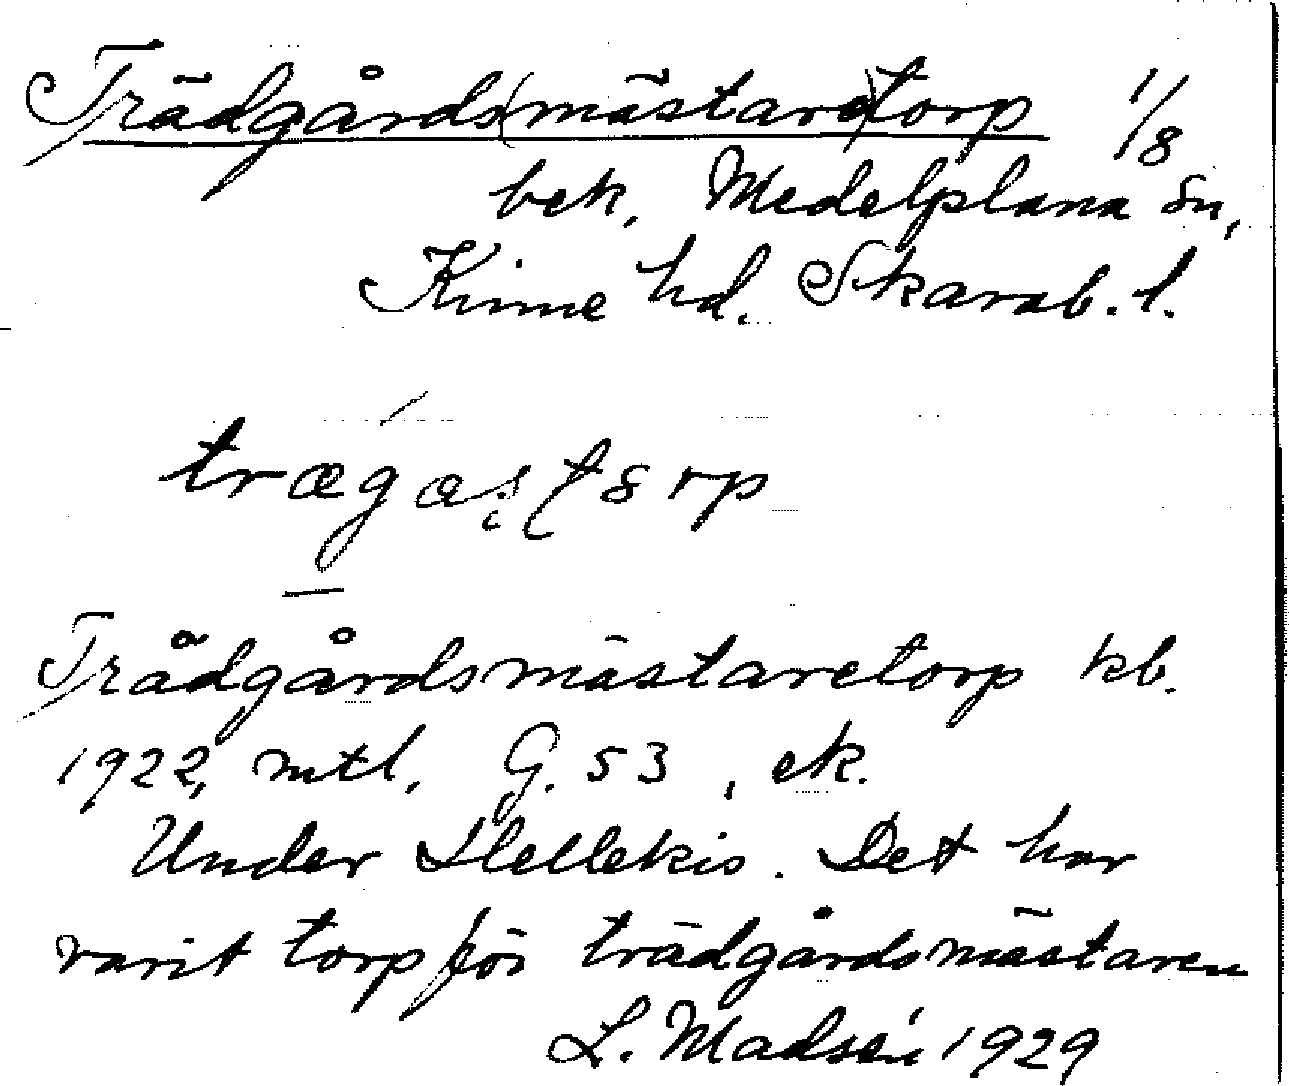 Trädgårds(mästare)torp 1/8
bek, Medelplana sn,
Kinne hd. Skarab. l.
trægas torp
Trädgårdsmästaretorp kb.
1922, mtl. G. 53, ek.
Under Hellekis. Det har
varit torp för trädgårdsmästaren
L. Madsén 1929